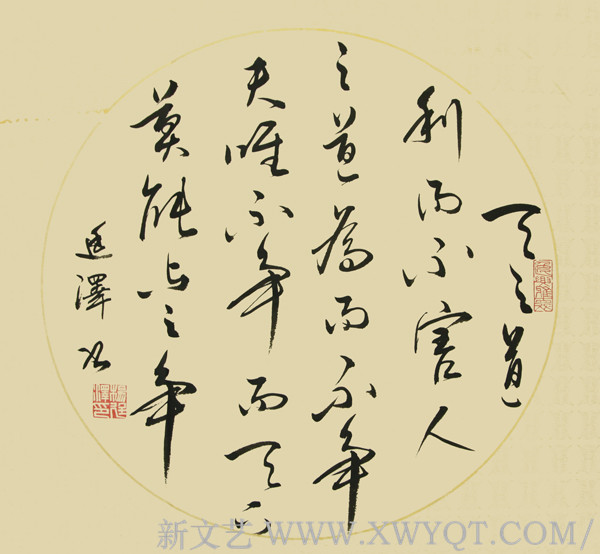 天之道
利而不害人
之道為而不争
夫唯不争而天下
莫能与之争
澤书
新文艺 WWW.XWYQT.COM/